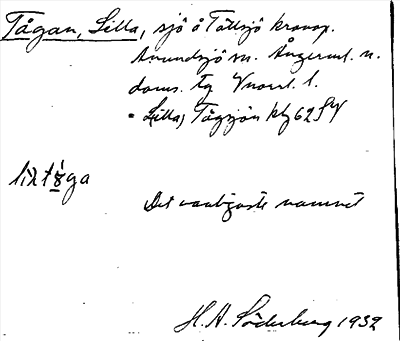 Tågan, Lilla, sjö å Tallsjö kronop.
Anundsjö sn. Ångerml. n.
doms. tg Vnorrl. l.
Lilla) Tågsjön kbl 62 SV
Det vanligaste namnet
H. A. Söderberg 1932